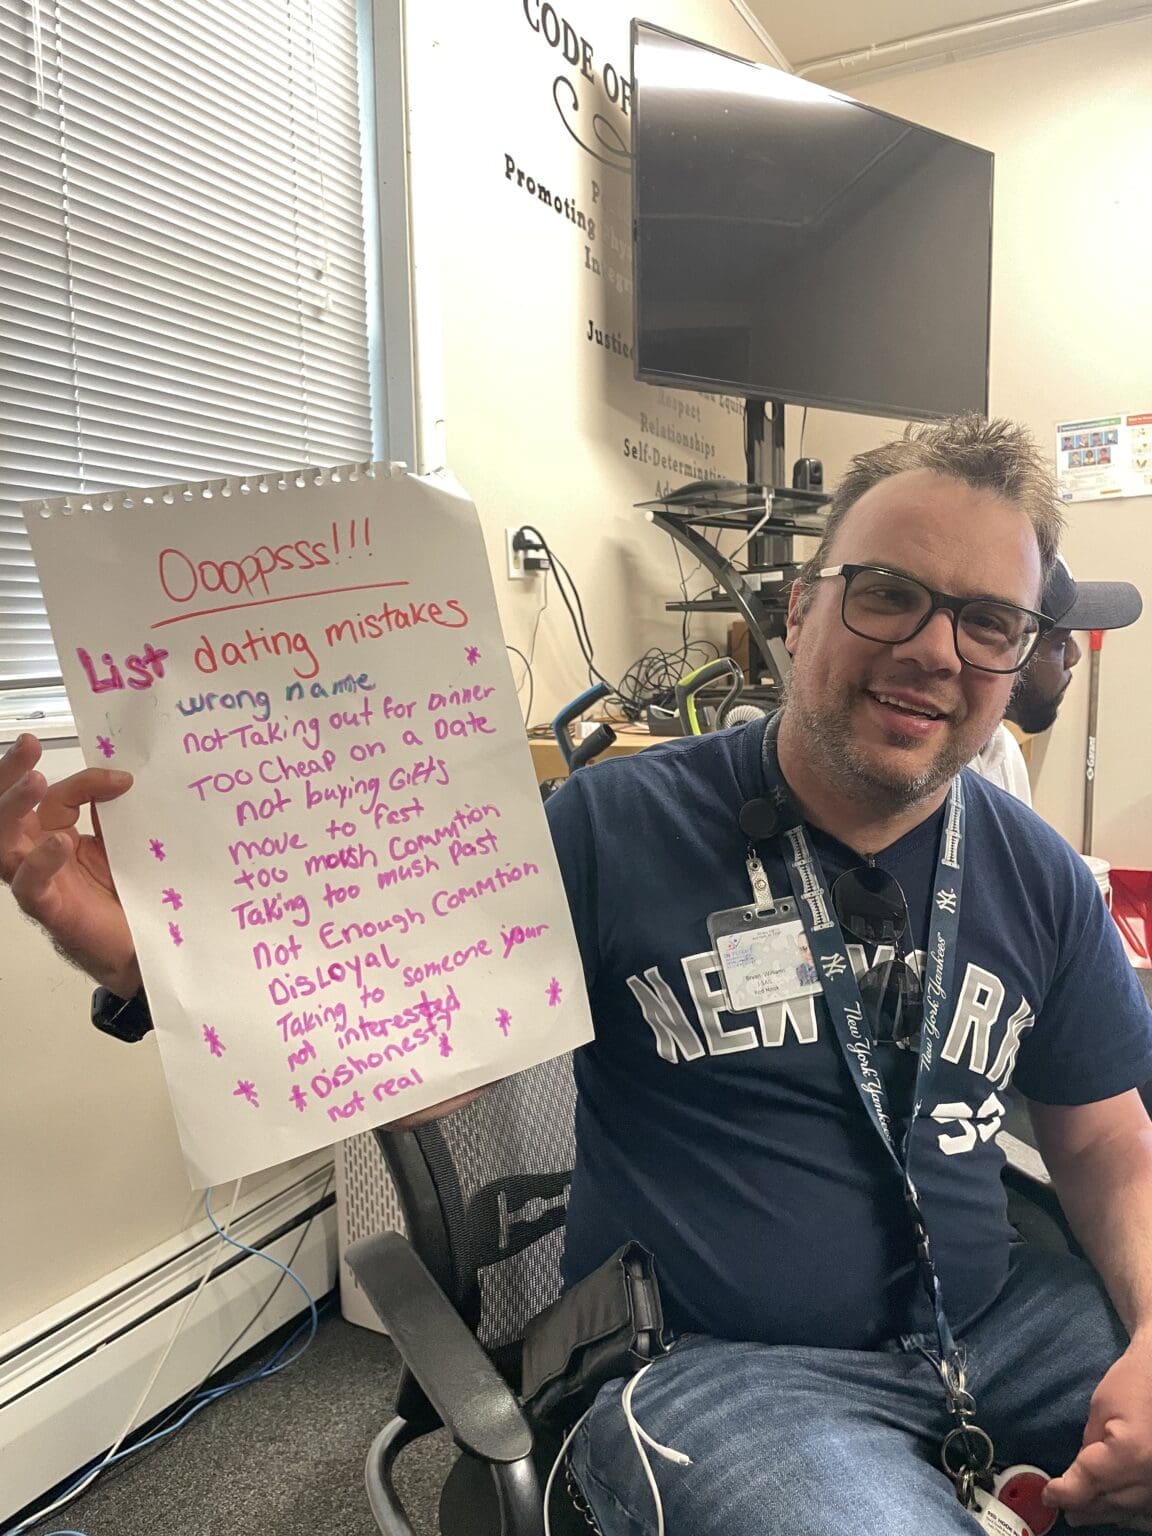 CODE OF
Promoting
Justice
Respect
Relationships
Self-Determination
Oooppsss!!!
List dating mistakes
wrong name
not Taking out for Dinner
TOO Cheap on a Date
not buying Gifts
move to fast
too moush Commtion
Taking too mush Past
not Enough Commtion
DISLOYAL
Taking to someone your
not interested
Dishonesty
not real
NEW YORK
New York Yankees
New York Yankees
NY
NY
Bryan Williams
Red Hook